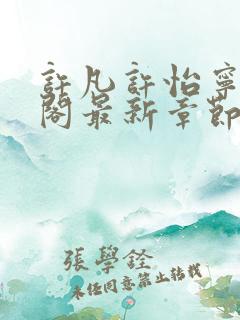 許凡許怡寧
閣最新章節
張學銓
未經同意禁止轉載